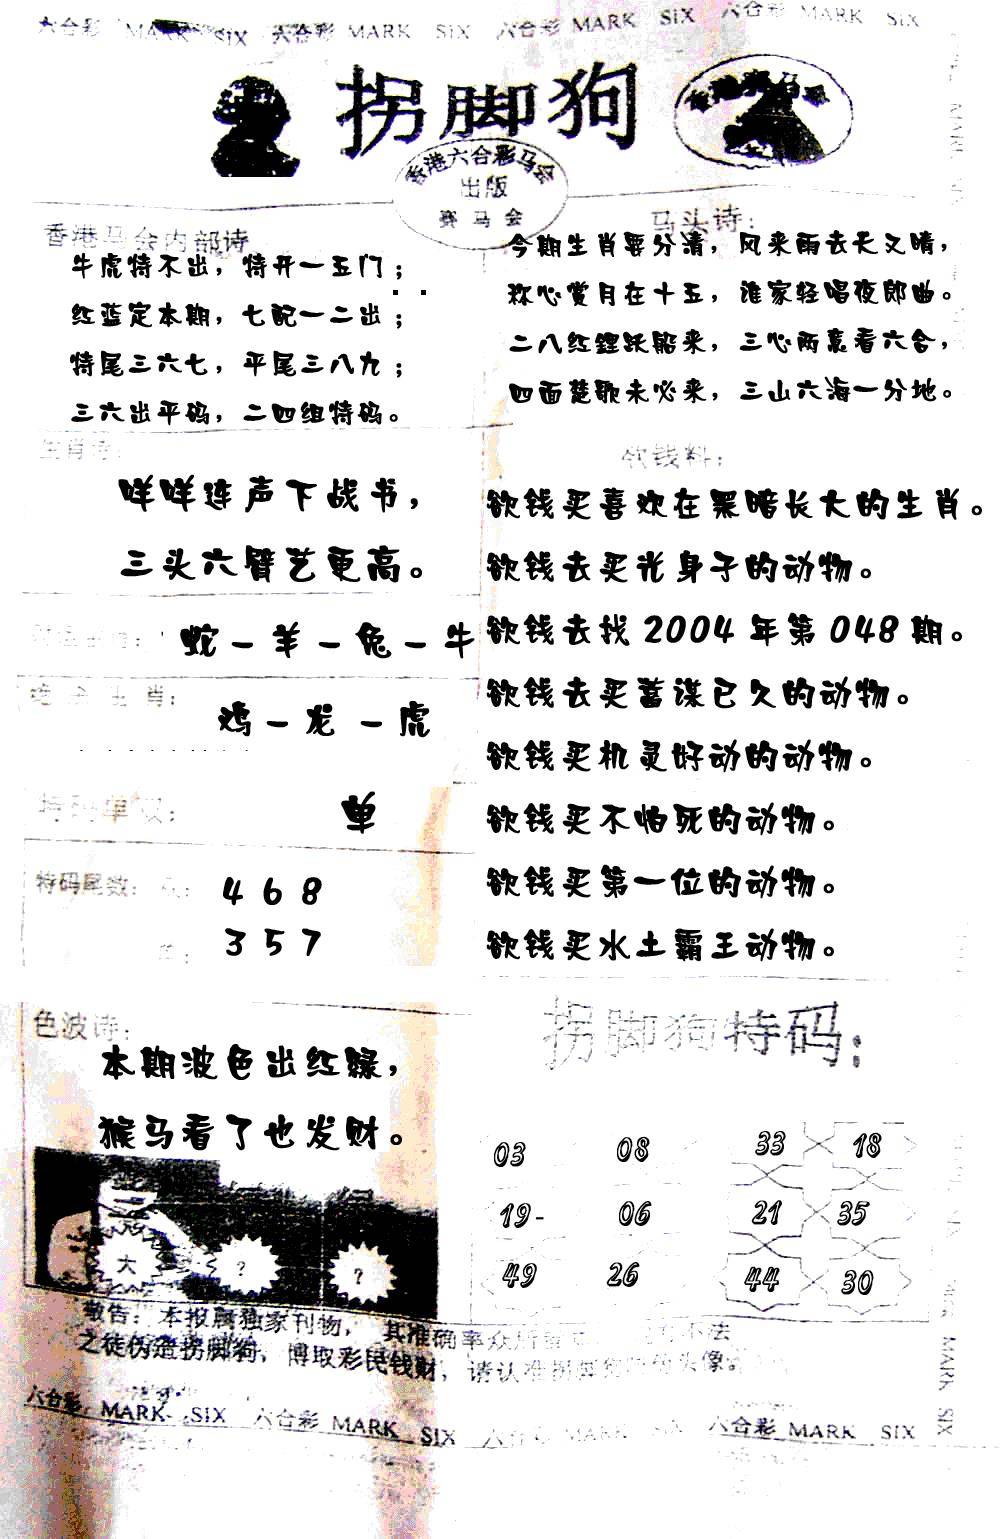 六合彩 MARK SIX 六合彩 MARK SIX 六合彩 MARK SIX 六合彩 MARK SIX
拐脚狗
香港六合彩马会
出版
赛马会
香港马会内部诗
牛虎特不出，特开一五门；
红蓝定本期，七配一二出；
特尾三六七，平尾三八九；
三六出平码，二四组特码。
马头诗：
今期生肖要分清，风来雨去天又晴，
称心赏月在十五，谁家轻唱夜郎曲。
二八红鲤跃船来，三心两意看六合，
四面楚歌未必来，三山六海一分地。
生肖诗：
咩咩连声下战书，
三头六臂艺更高。
蛇－羊－兔－牛
生肖：
鸡－龙－虎
特码单双：
单
特码尾数：
4 6 8
3 5 7
欲钱料：
欲钱买喜欢在黑暗长大的生肖。
欲钱去买光身子的动物。
欲钱去找2004年第048期。
欲钱去买蓄谋已久的动物。
欲钱买机灵好动的动物。
欲钱买不怕死的动物。
欲钱买第一位的动物。
欲钱买水土霸王动物。
色波诗：
本期波色出红绿，
猴马看了也发财。
大 ? ?
拐脚狗特码：
03 08 33 18
19- 06 21 35
49 26 44 30
敬告：本报属独家刊物，其准确率众所 不法
之徒伪造拐脚狗，博取彩民钱财，请认准拐脚 头像。
六合彩 MARK SIX 六合彩 MARK SIX 六合彩 MARK SIX 六合彩 MARK SIX
MARK SIX